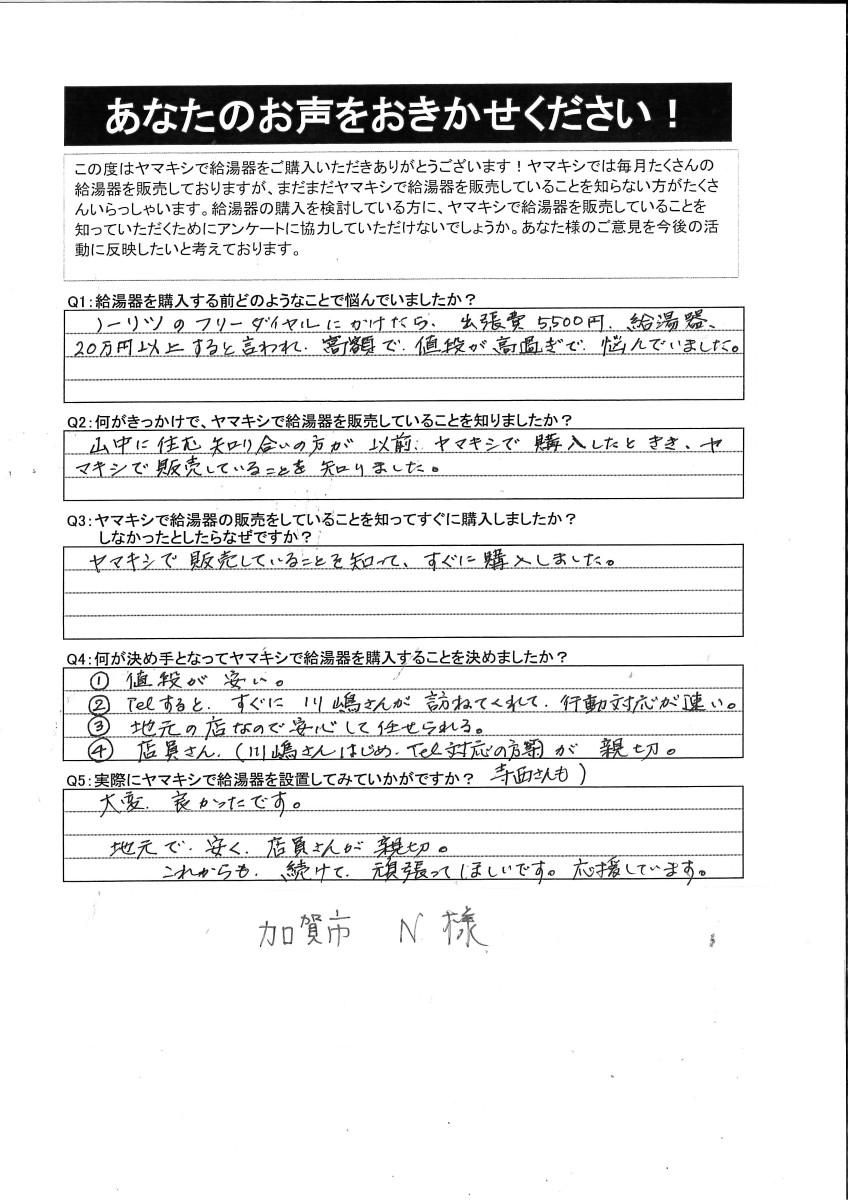 あなたのお声をおきかせください！
この度はヤマキシで給湯器をご購入いただきありがとうございます！ヤマキシでは毎月たくさんの
給湯器を販売しておりますが、まだまだヤマキシで給湯器を販売していることを知らない方がたくさ
んいらっしゃいます。給湯器の購入を検討している方に、ヤマキシで給湯器を販売していることを
知っていただくためにアンケートに協力していただけないでしょうか。あなた様のご意見を今後の活
動に反映したいと考えております。
Q1：給湯器を購入する前どのようなことで悩んでいましたか？
ノーリツのフリーダイヤルにかけたら、出張費5,500円、給湯器、
20万円以上すると言われ、高額で、値段が高過ぎで、悩んでいました。
Q2：何がきっかけで、ヤマキシで給湯器を販売していることを知りましたか？
山中に住む知り合いの方が以前、ヤマキシで購入したときき、ヤ
マキシで販売していることを知りました。
Q3：ヤマキシで給湯器の販売をしていることを知ってすぐに購入しましたか？
しなかったとしたらなぜですか？
ヤマキシで販売していることを知って、すぐに購入しました。
Q4：何が決め手となってヤマキシで給湯器を購入することを決めましたか？
① 値段が安い。
② Telすると、すぐに川嶋さんが訪ねてくれて、行動対応が速い。
③ 地元の店なので安心して任せられる。
④ 店員さん、（川嶋さんはじめ、Tel対応の方 が親切。
寺西さんも）
Q5：実際にヤマキシで給湯器を設置してみていかがですか？
大変、良かったです。
地元で、安く、店員さんが親切。
これからも、続けて、頑張ってほしいです。応援しています。
加賀市 N様